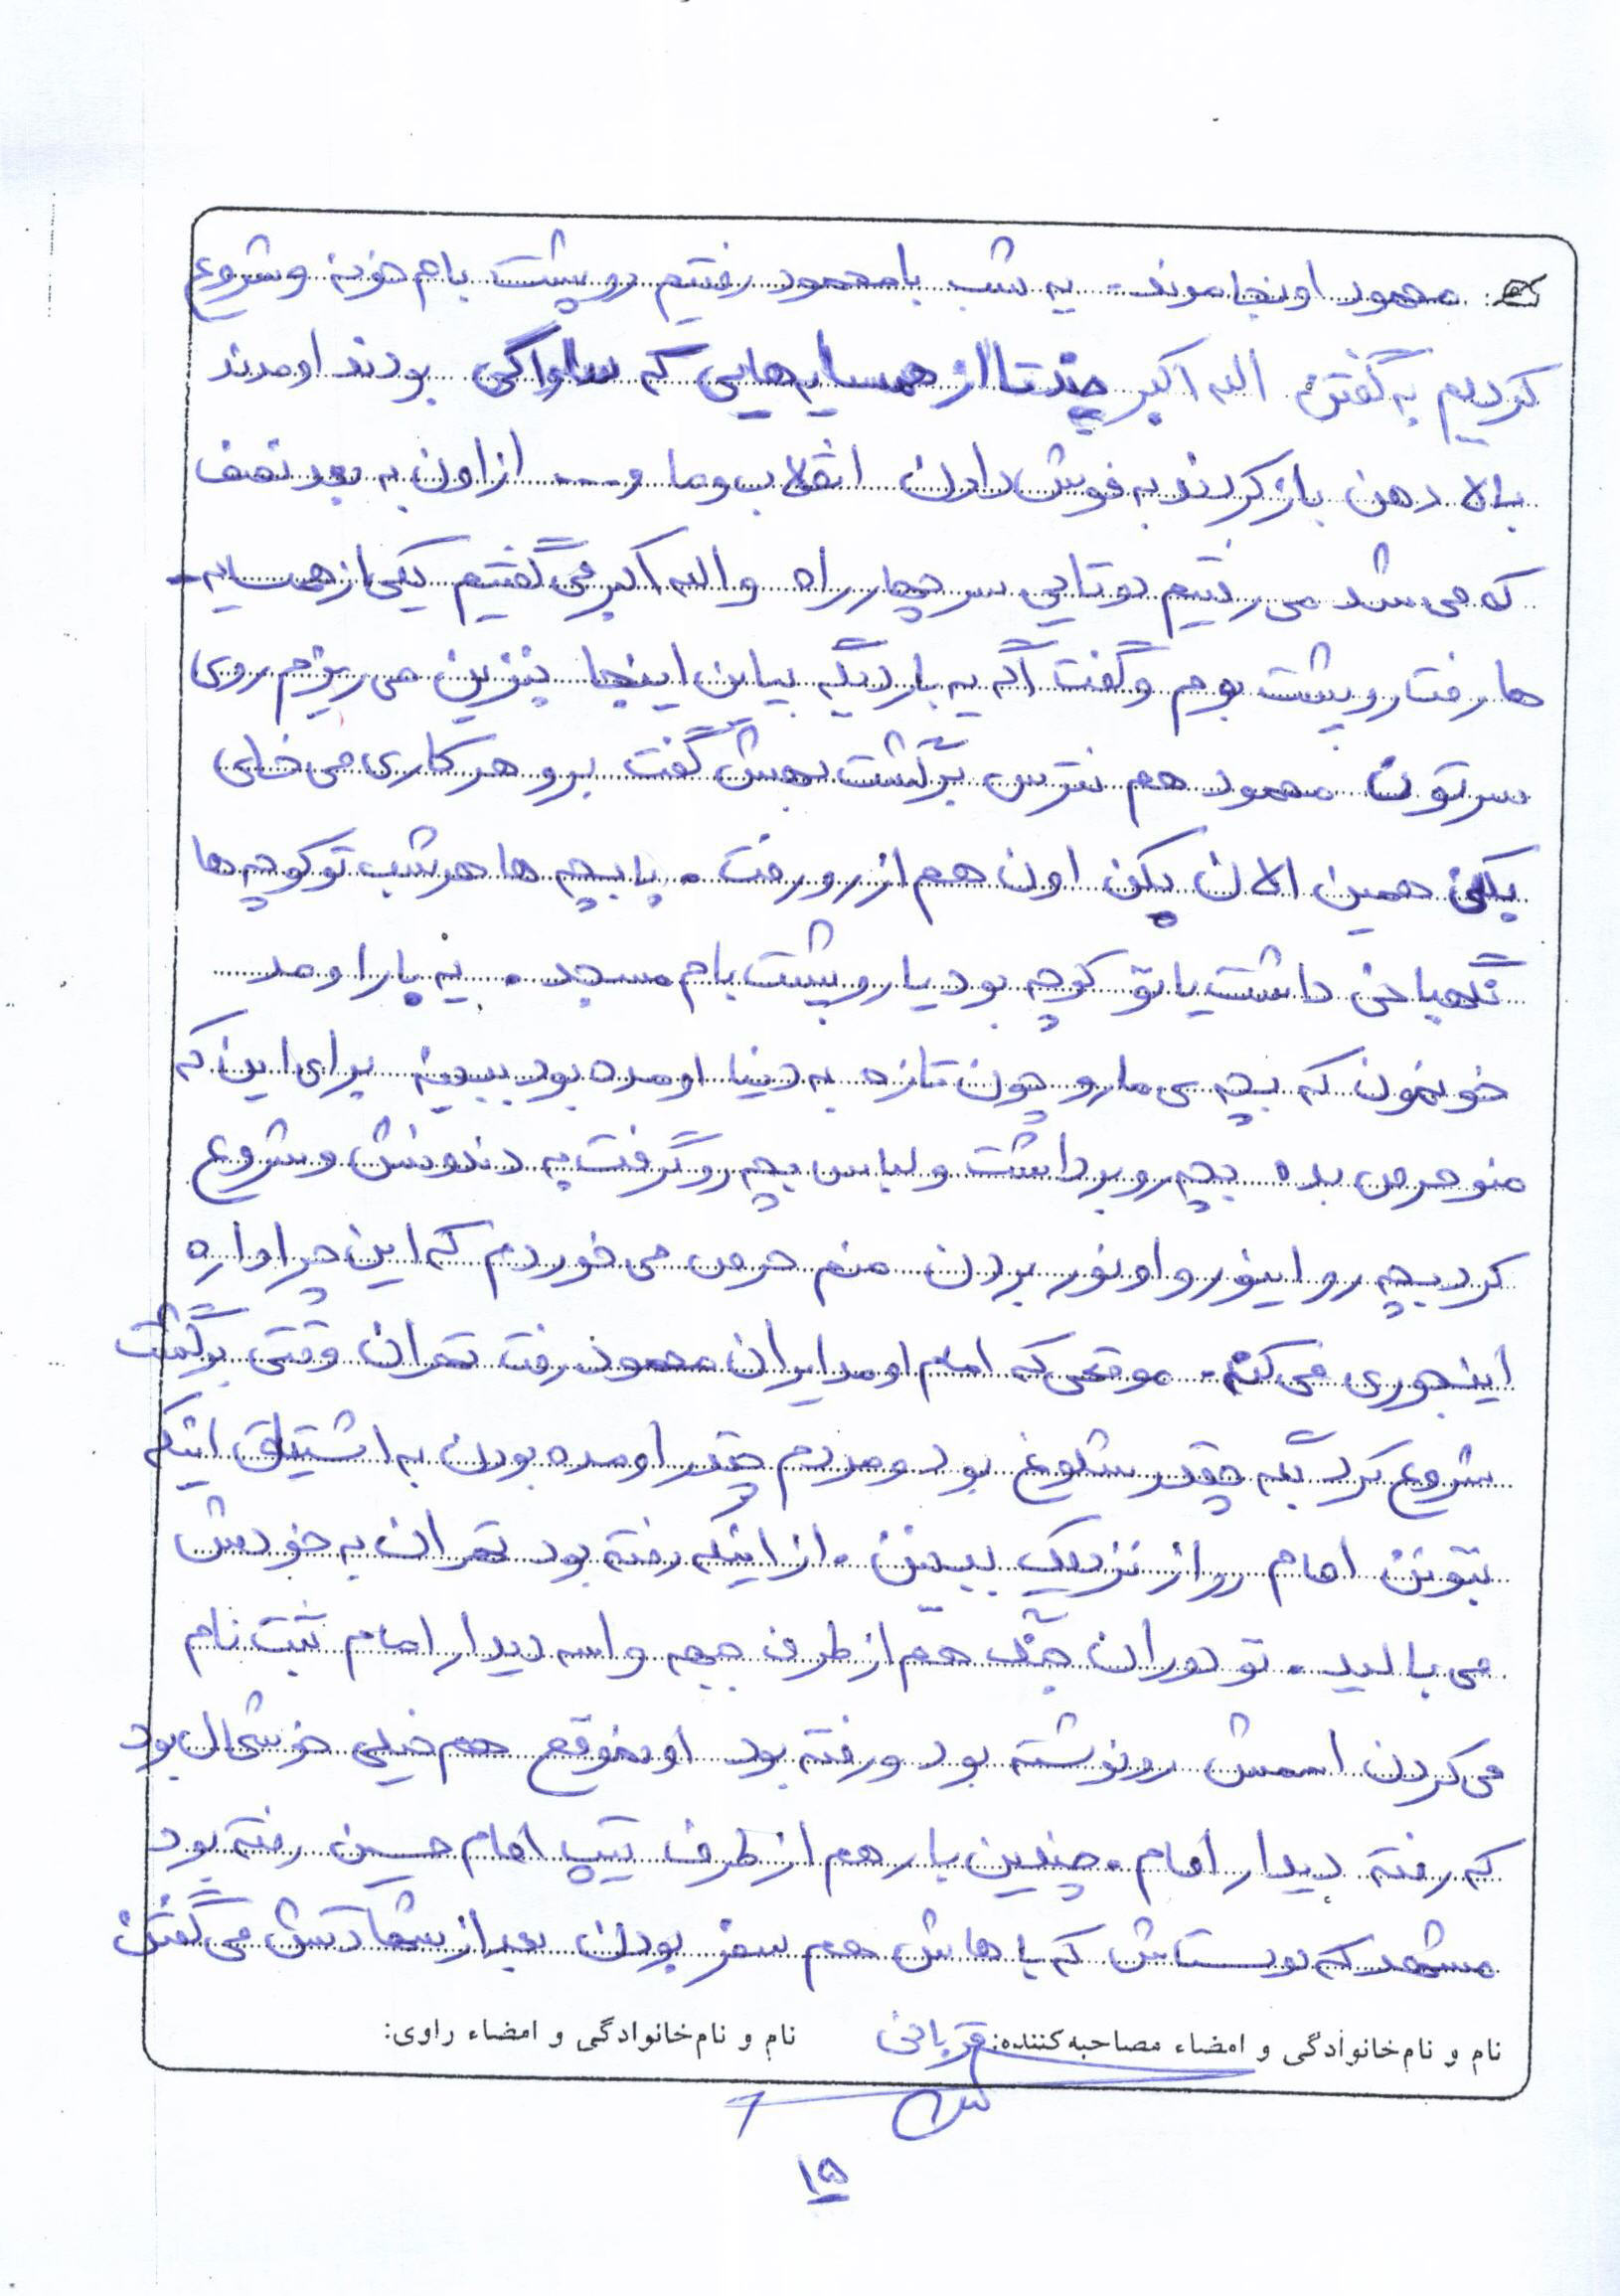 محمود اونجا موند. یه شب با محمود رفتیم رو پشت بام خونه و شروع
کردیم به گفتن الله اکبر چندتا از همسایه‌هایی که ساواکی بودند اومدند
بالا دهن باز کردند به فوش دادن انقلاب و ما و .... از اون به بعد نصف
که می‌شد می‌رفتیم دوتایی سر چهار راه و الله اکبر می‌گفتیم یکی از همسایه-
ها رفت رو پشت بوم و گفت اگه یه بار دیگه بیاین اینجا بنزین می‌ریزم روی
سرتون محمود هم نترس برگشت بهش گفت برو هر کاری می‌خای
بکنی همین الان بکن اون هم از رو رفت. با بچه ها هر شب تو کوچه ها
نگهبانی داشت یا تو کوچه بود یا رو پشت بام مسجد. یه بار اومد
خونمون که بچه‌ی ما رو چون تازه به دنیا اومده بود ببینه برای این که
منو حرص بده بچه رو برداشت و لباس بچه رو گرفت به دندونش و شروع
کرد بچه رو اینور و اونور بردن منم حرص می‌خوردم که این چرا داره
اینجوری می‌کنه. موقعی که امام اومد ایران محمود رفت تهران وقتی برگشت
شروع کرد بگه چقدر شلوغ بود و مردم چقدر اومده بودن به اشتیاق اینکه
بتونن امام رو از نزدیک ببینن. از اینکه رفته بود تهران به خودش
می بالید. تو دوران جنگ هم از طرف جبهه واسه دیدار امام ثبت نام
می‌کردن اسمش رو نوشته بود و رفته بود اونموقع هم خیلی خوشحال بود
که رفته دیدار امام. چندین بار هم از طرف تیپ امام حسین رفته بود
مشهد که دوستاش که باهاش هم سفر بودن بعد از شهادتش می‌گفتن
نام و نام‌خانوادگی و امضاء مصاحبه‌کننده: قربانی نام و نام‌خانوادگی و امضاء راوی:
۱۵